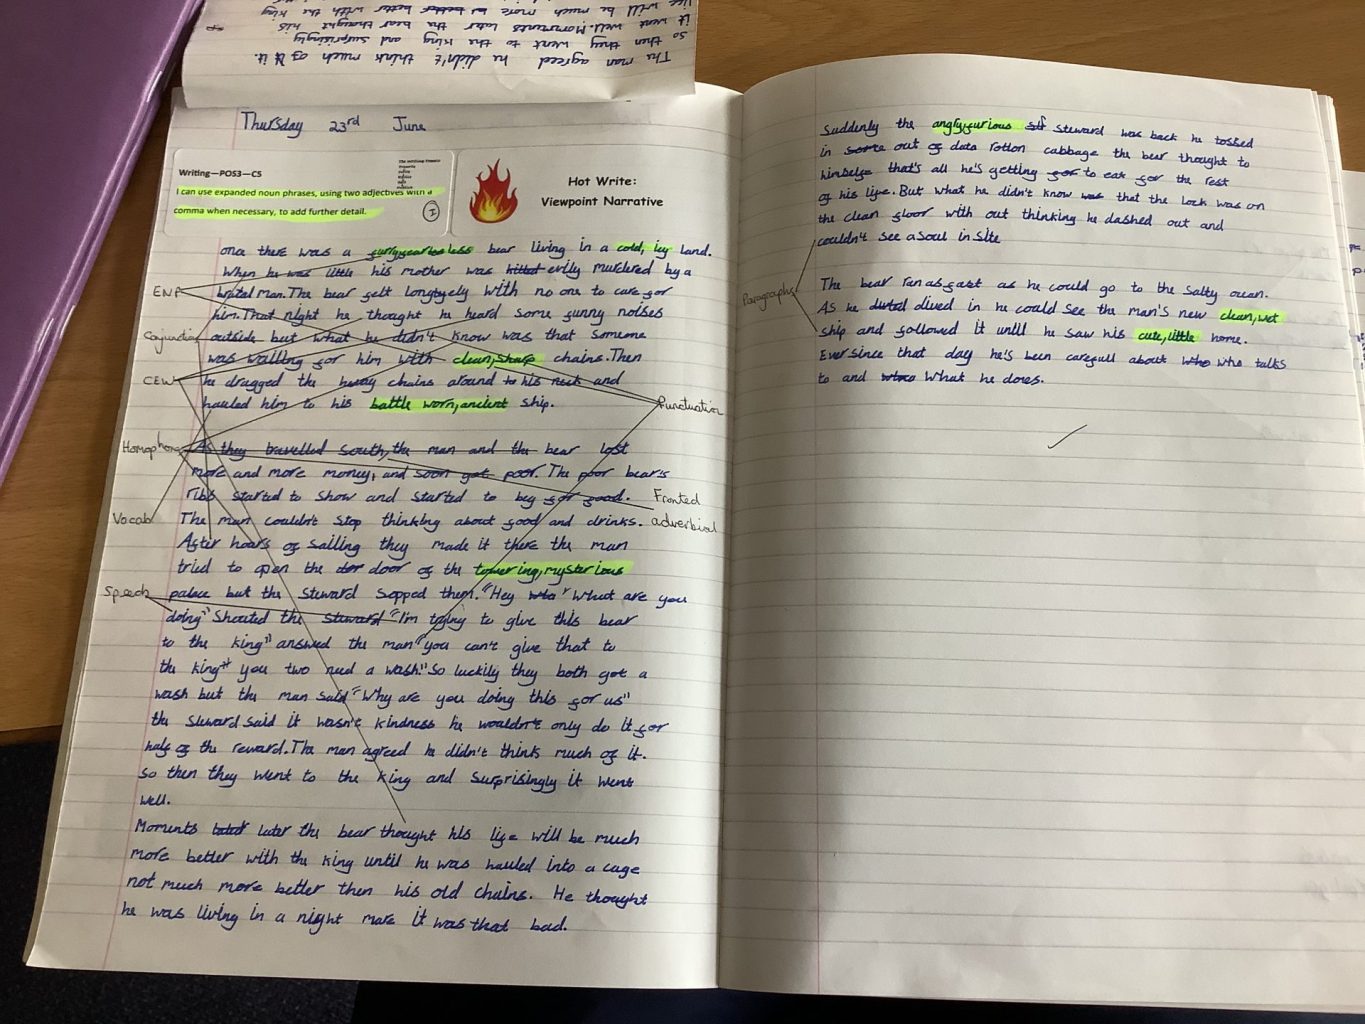 The man agreed he didn't think much of it.
So then they went to the king and surprisingly
it went well. Moments later the bear thought his
life will be much more better with the king
Thursday 23rd June
Writing—POS3—C5
I can use expanded noun phrases, using two adjectives with a
comma when necessary, to add further detail.
I
Hot Write:
Viewpoint Narrative
once there was a furry, fearless bear living in a cold, icy land.
When he was little his mother was killed evily murdered by a
brutal man. The bear felt longtyely with no one to care for
him. That night he thought he heard some funny noises
outside but what he didn't know was that someone
was waiting for him with clean, sharp chains. Then
he dragged the heavy chains around to his neck and
hauled him to his battle worn, ancient ship.
As they travelled south, the man and the bear lost
more and more money, and soon got poor. The poor bear's
ribs started to show and started to beg for food.
The man couldn't stop thinking about food and drinks.
After hours of sailing they made it there the man
tried to open the dor door of the towering, mysterious
palace but the steward sopped them. "Hey wha" What are you
doing" shouted the steward "I'm trying to give this bear
to the king" answed the man "you can't give that to
the king" you two need a wash." So luckily they both got a
wash but the man said "Why are you doing this for us"
the steward said it wasn't kindness he wouldn't only do it for
half of the reward. The man agreed he didn't think much of it.
so then they went to the king and surprisingly it went
well.
Moments later the bear thought his life will be much
more better with the king until he was hauled into a cage
not much more better then his old chains. He thought
he was living in a night mare it was that bad.
ENP
Conjunction
CEW
Homophone
Vocab
Speech
Punctuation
Fronted
adverbial
Suddenly the angry, furious steward was back he tossed
in some out of data rotton cabbage the bear thought to
himselfe that's all he's getting for to eat for the rest
of his life. But what he didn't know was that the lock was on
the clean floor with out thinking he dashed out and
couldn't see a soul in site
Paragraphs
The bear ran as fast as he could go to the salty ocean.
As he dived in he could see the man's new clean, wet
ship and followed it until he saw his cute, little home.
Ever since that day he's been carefull about who who talks
to and what he does.